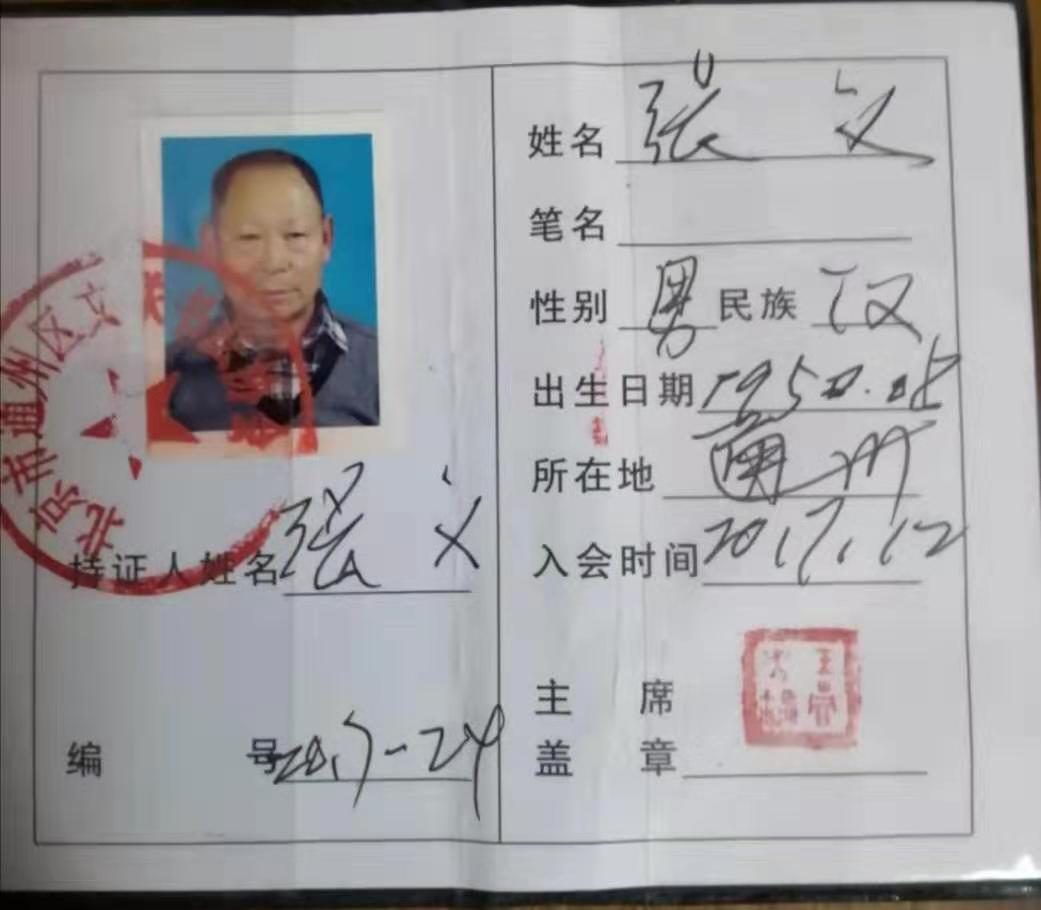 北京市通州区文
持证人姓名 张义
编号 2017-24
姓名 张义
笔名
性别 男 民族 汉
出生日期 1950.
所在地 通州
入会时间 2017.12
主席
盖章